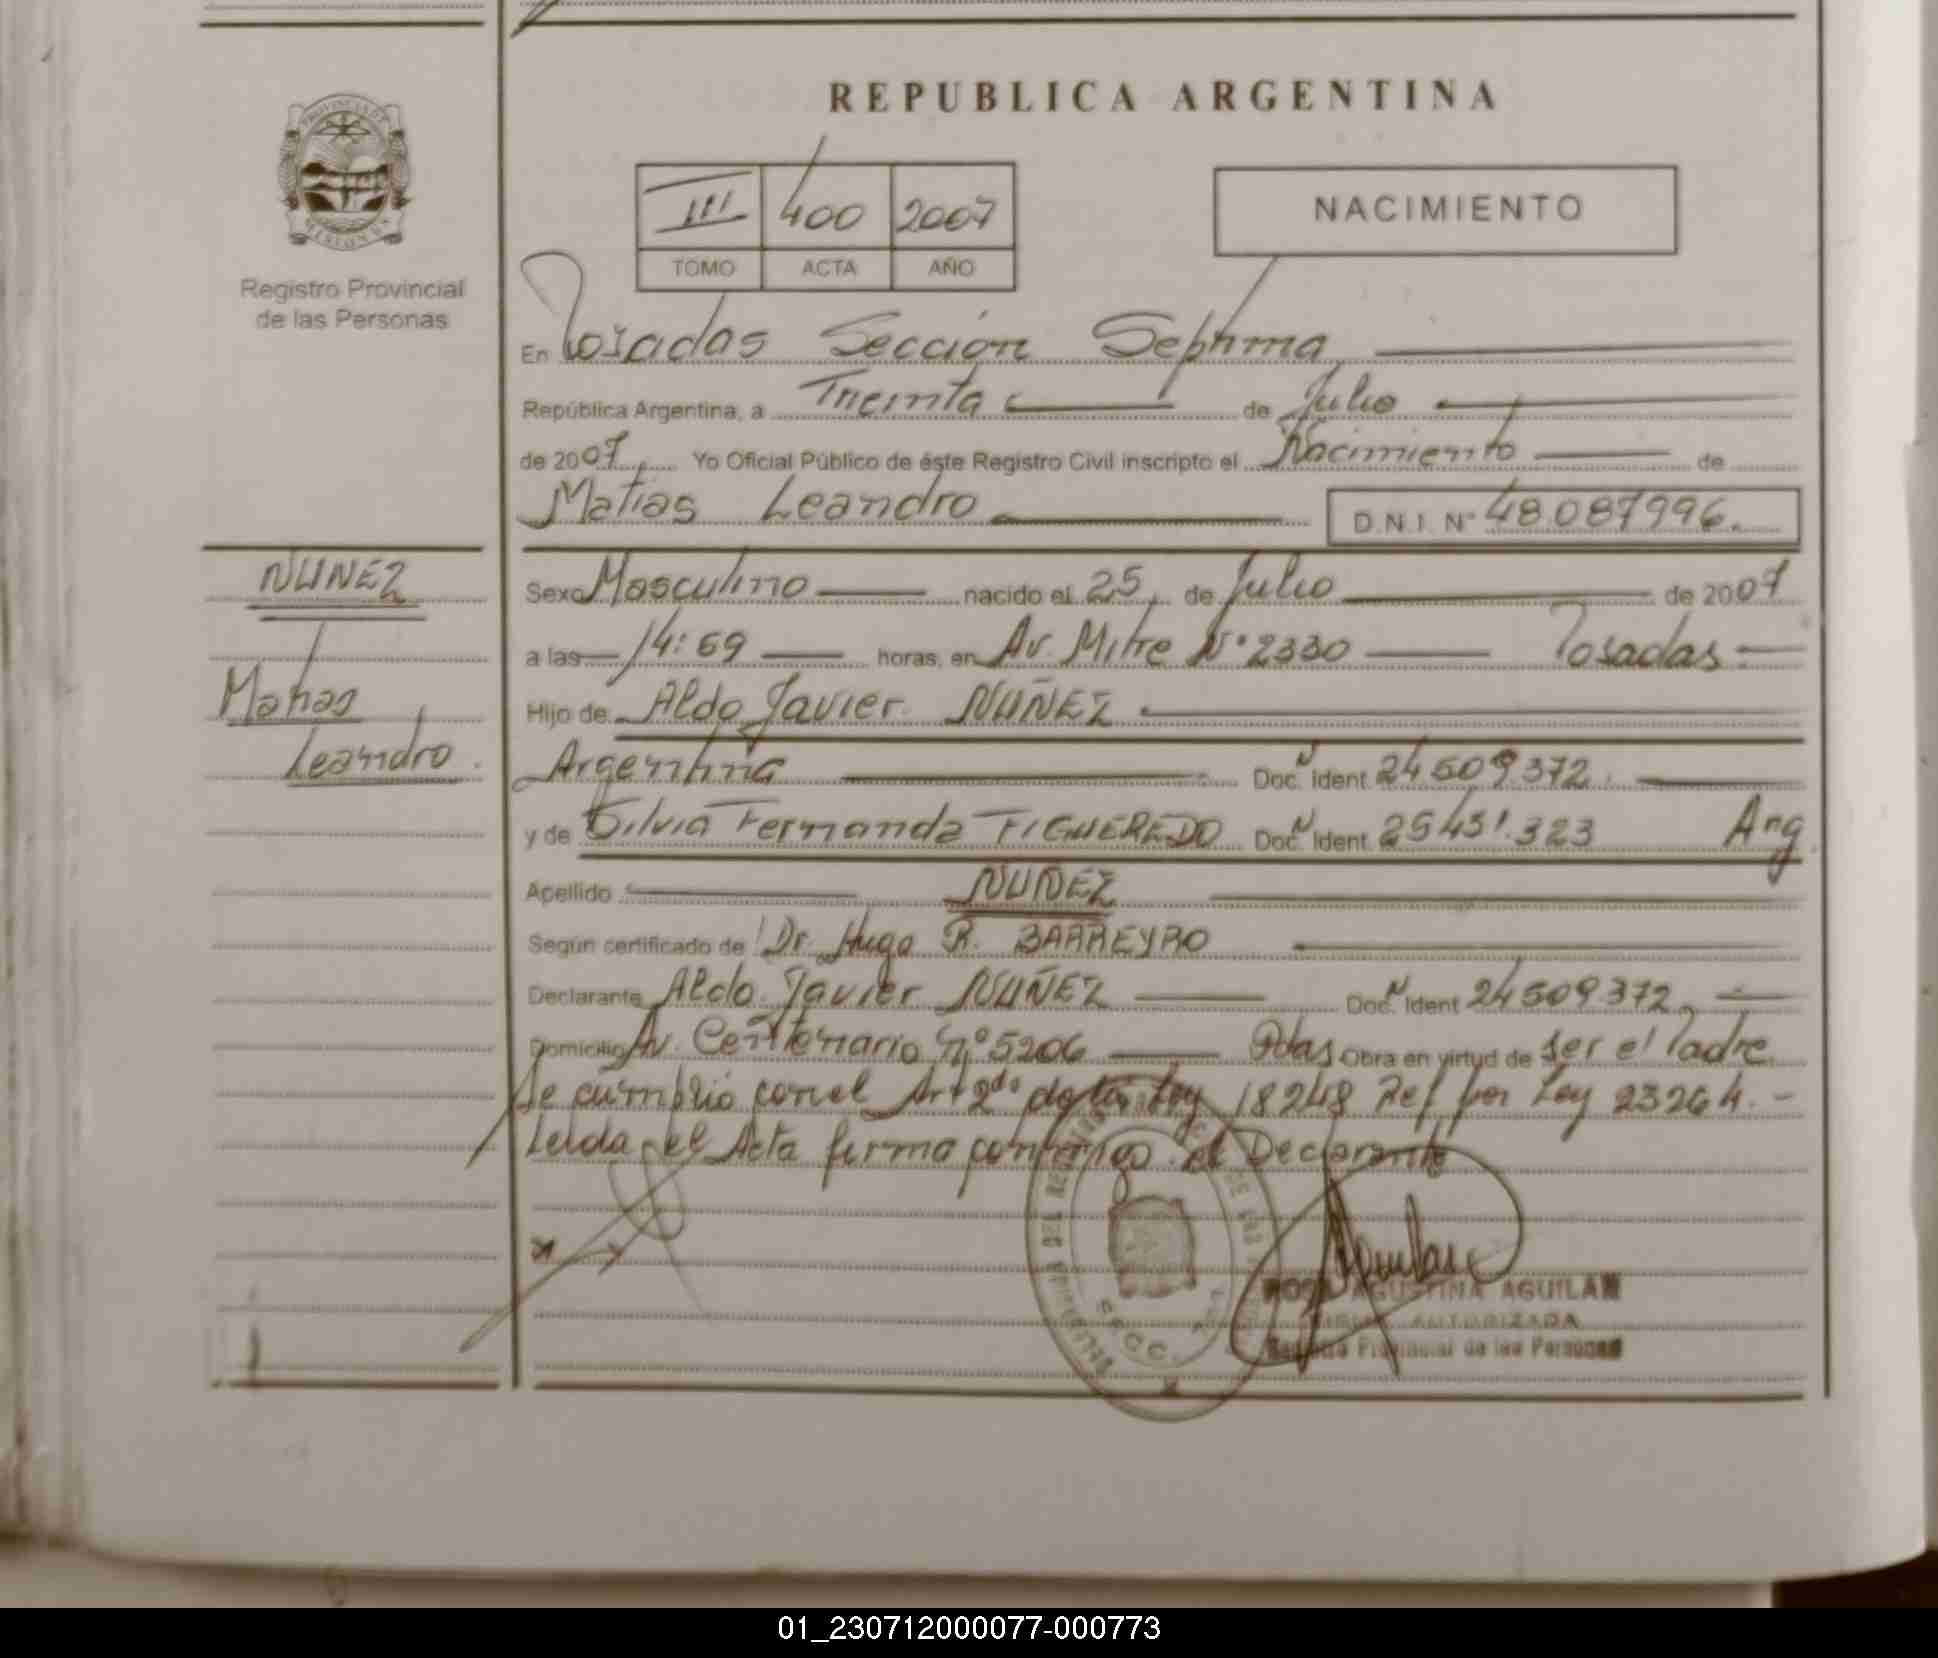 REPUBLICA ARGENTINA
PROVINCIA DE MISIONES
Registro Provincial
de las Personas
III 400 2007
TOMO ACTA AÑO
NACIMIENTO
En Posadas Sección Septima
República Argentina, a Treinta de Julio
de 2007 Yo Oficial Público de éste Registro Civil inscripto el Nacimiento de
Matias Leandro D.N.I. Nº 48.087996.
NUÑEZ
Matias
Leandro.
Sexo Masculino nacido el 25 de Julio de 2007
a las 14:59 horas, en Av. Mitre Nº 2330 Posadas
Hijo de Aldo Javier NUÑEZ
Argentina Doc. Ident 24509.372.
y de Silvia Fernanda FIGUEREDO Doc. Ident 25431.323 Arg
Apellido NUÑEZ
Según certificado de Dr. Hugo R. BARREYRO
Declarante Aldo Javier NUÑEZ Doc. Ident 24509.372
Domicilio Av. Centenario nº 5206 Pdas Obra en virtud de ser el Padre
Se cumplió con el Art 2do de la Ley 18248 Ref por Ley 23264.-
Leida el Acta firma conmigo el Declarante
ROSA AGUSTINA AGUILAR
FIRMA AUTORIZADA
Registro Provincial de las Personas
01_230712000077-000773